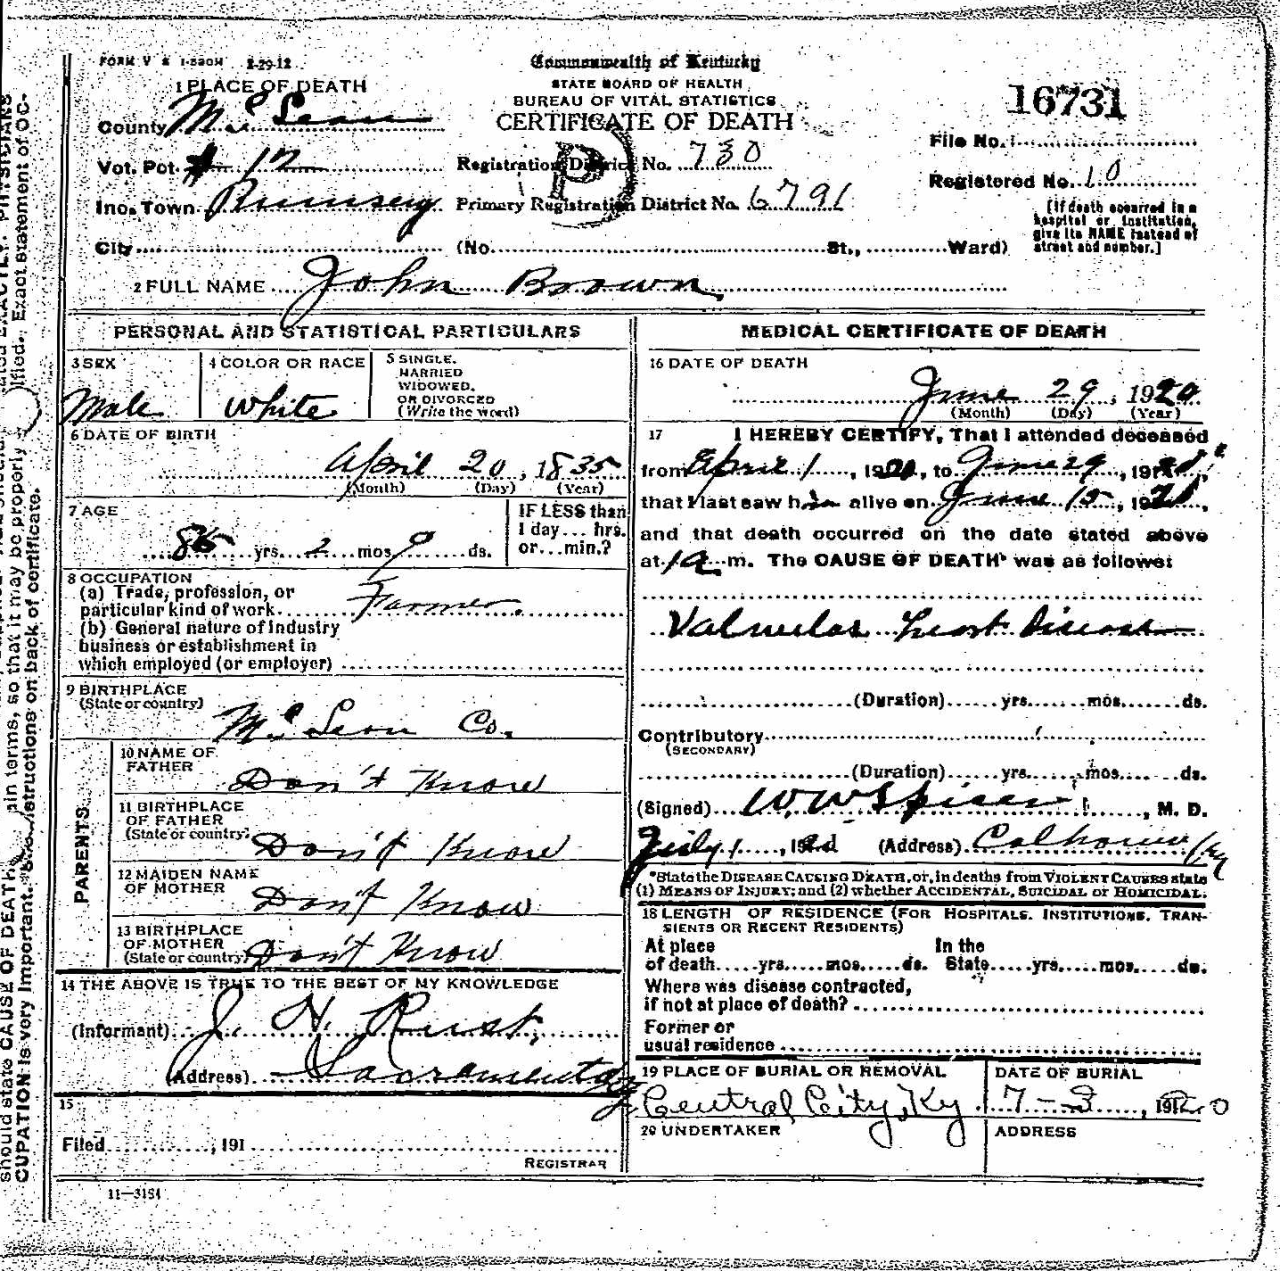 FORM V S 1-530M 2-29-12
Commonwealth of Kentucky
STATE BOARD OF HEALTH
BUREAU OF VITAL STATISTICS
CERTIFICATE OF DEATH
16731
1 PLACE OF DEATH
County McLean
File No.
Vot. Pct. # 12 Registration District No. 730
Registered No. 10
Inc. Town Rumsey Primary Registration District No. 6791
[If death occurred in a
hospital or institution,
give its NAME instead of
street and number.]
City (No. St., Ward)
2 FULL NAME John Brown
PERSONAL AND STATISTICAL PARTICULARS
3 SEX
Male
4 COLOR OR RACE
White
5 SINGLE,
MARRIED
WIDOWED,
OR DIVORCED
(Write the word)
6 DATE OF BIRTH
April 20, 1835
(Month) (Day) (Year)
7 AGE
85 yrs. 2 mos. 9 ds.
IF LESS than
1 day... hrs.
or... min.?
8 OCCUPATION
(a) Trade, profession, or
particular kind of work Farmer
(b) General nature of industry
business or establishment in
which employed (or employer)
9 BIRTHPLACE
(State or country)
McLean Co.
PARENTS
10 NAME OF
FATHER
Don't Know
11 BIRTHPLACE
OF FATHER
(State or country)
Don't Know
12 MAIDEN NAME
OF MOTHER
Don't Know
13 BIRTHPLACE
OF MOTHER
(State or country)
Don't Know
14 THE ABOVE IS TRUE TO THE BEST OF MY KNOWLEDGE
(Informant) J. H. Rust,
(Address) Sacramento Ky
15
Filed , 191
REGISTRAR
11—3184
MEDICAL CERTIFICATE OF DEATH
16 DATE OF DEATH
June 29, 1920
(Month) (Day) (Year)
17 I HEREBY CERTIFY, That I attended deceased
from April 1, 1920, to June 29, 1920,
that I last saw him alive on June 15, 1920,
and that death occurred on the date stated above
at 1 a m. The CAUSE OF DEATH* was as follows:
Valvular heart Disease
(Duration) yrs. mos. ds.
Contributory
(SECONDARY)
(Duration) yrs. mos. ds.
(Signed) W. W. , M. D.
July 1, 1920 (Address) Calhoun Ky
*State the DISEASE CAUSING DEATH, or, in deaths from VIOLENT CAUSES state
(1) MEANS OF INJURY; and (2) whether ACCIDENTAL, SUICIDAL or HOMICIDAL.
18 LENGTH OF RESIDENCE (FOR HOSPITALS, INSTITUTIONS, TRAN-
SIENTS OR RECENT RESIDENTS)
At place In the
of death yrs. mos. ds. State yrs. mos. ds.
Where was disease contracted,
if not at place of death?
Former or
usual residence
19 PLACE OF BURIAL OR REMOVAL
Central City, Ky
DATE OF BURIAL
7-3, 1920
20 UNDERTAKER
ADDRESS
should state CAUSE OF DEATH in plain terms, so that it may be properly
CUPATION is very important. See instructions on back of certificate.
Exact statement of OC-